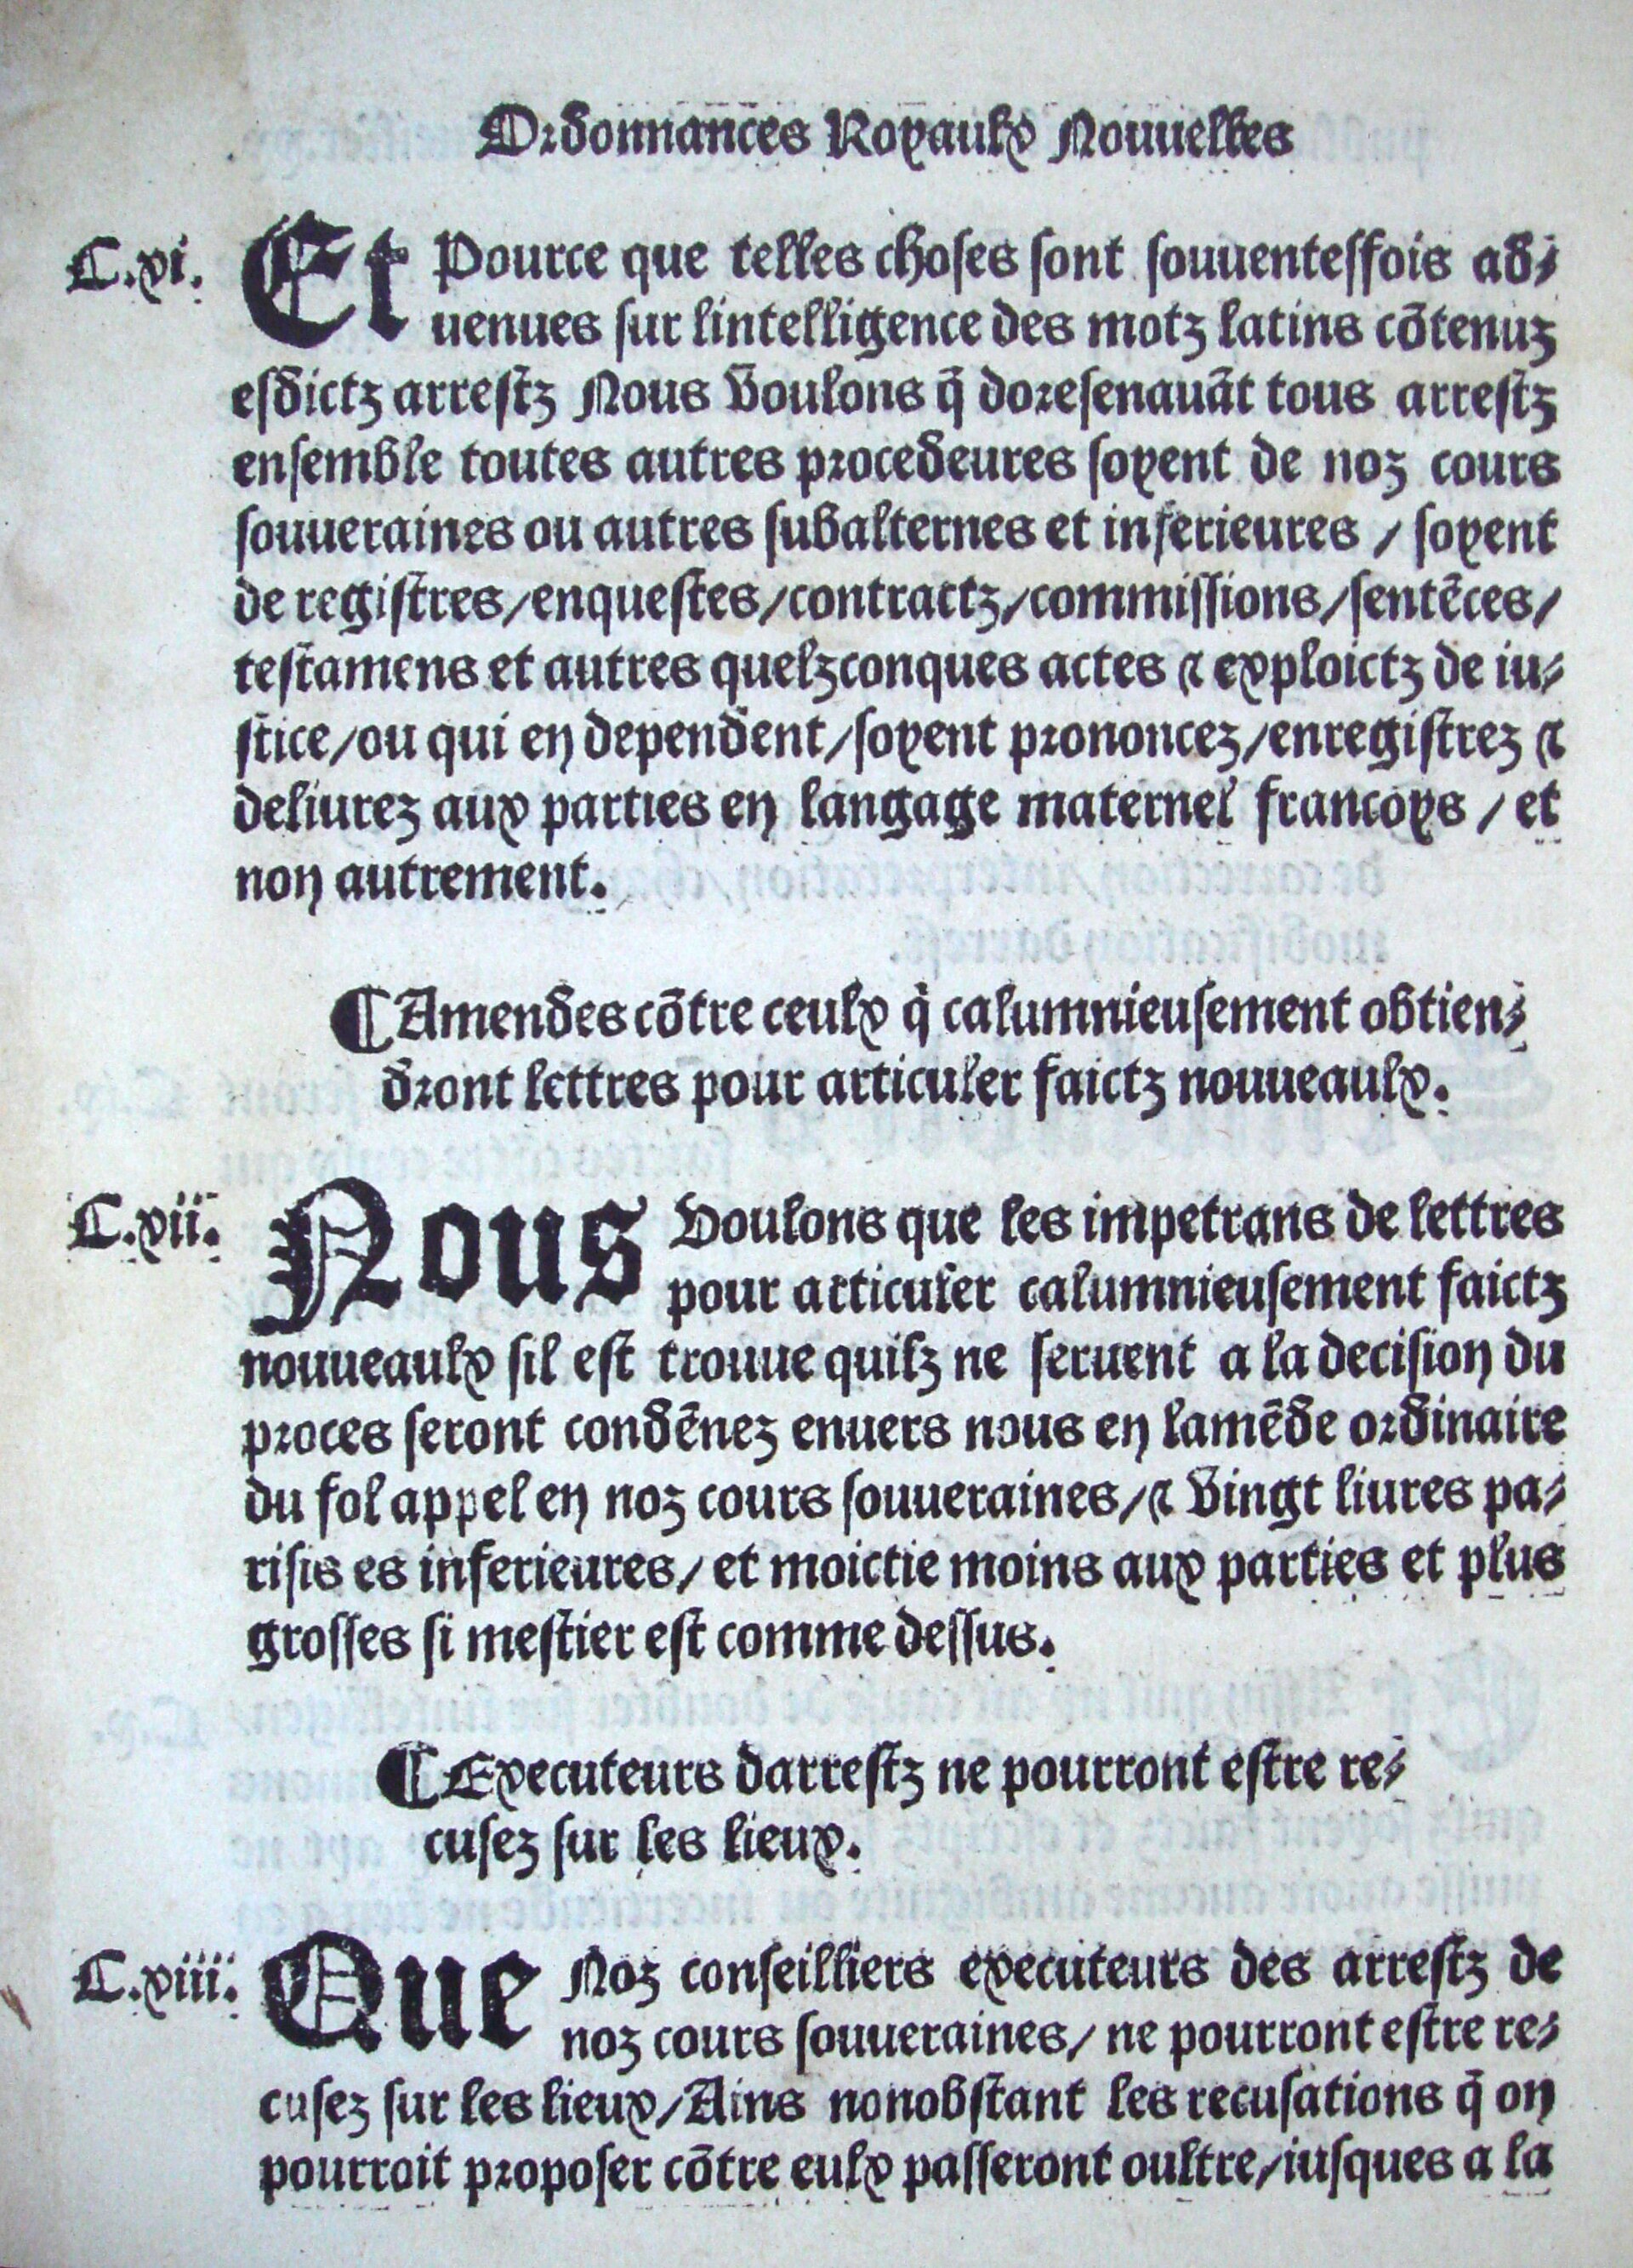 Ordonnances Royaulx Nouuelles
C.xi. Et Pource que telles choses sont souuentesfois ad⸗
uenues sur lintelligence des motz latins cōtenuz
esdictz arrestz Nous Voulons q̄ doresenauāt tous arrestz
ensemble toutes autres procedeures soyent de noz cours
souueraines ou autres subalternes et inferieures / soyent
de registres/enquestes/contractz/commissions/sentēces/
testamens et autres quelzconques actes ⁊ exploictz de iu⸗
stice/ou qui en dependent/soyent prononcez/enregistrez ⁊
deliurez aux parties en langage maternel francoys / et
non autrement.
¶ Amendes cōtre ceulx q̇ calumnieusement obtien⸗
dront lettres pour articuler faictz nouueaulx.
C.xii. Nous Voulons que les impetrans de lettres
pour articuler calumnieusement faictz
nouueaulx sil est trouue quilz ne seruent a la decision du
proces seront condēnez enuers nous en lamēde ordinaire
du fol appel en noz cours souueraines/⁊ Vingt liures pa⸗
risis es inferieures/ et moictie moins aux parties et plus
grosses si mestier est comme dessus.
¶ Executeurs darrestz ne pourront estre re⸗
cusez sur les lieux.
C.xiii. Que Noz conseilliers executeurs des arrestz de
noz cours souueraines/ ne pourront estre re⸗
cusez sur les lieux/Ains nonobstant les recusations q̄ on
pourroit proposer cōtre eulx passeront oultre/iusques a la